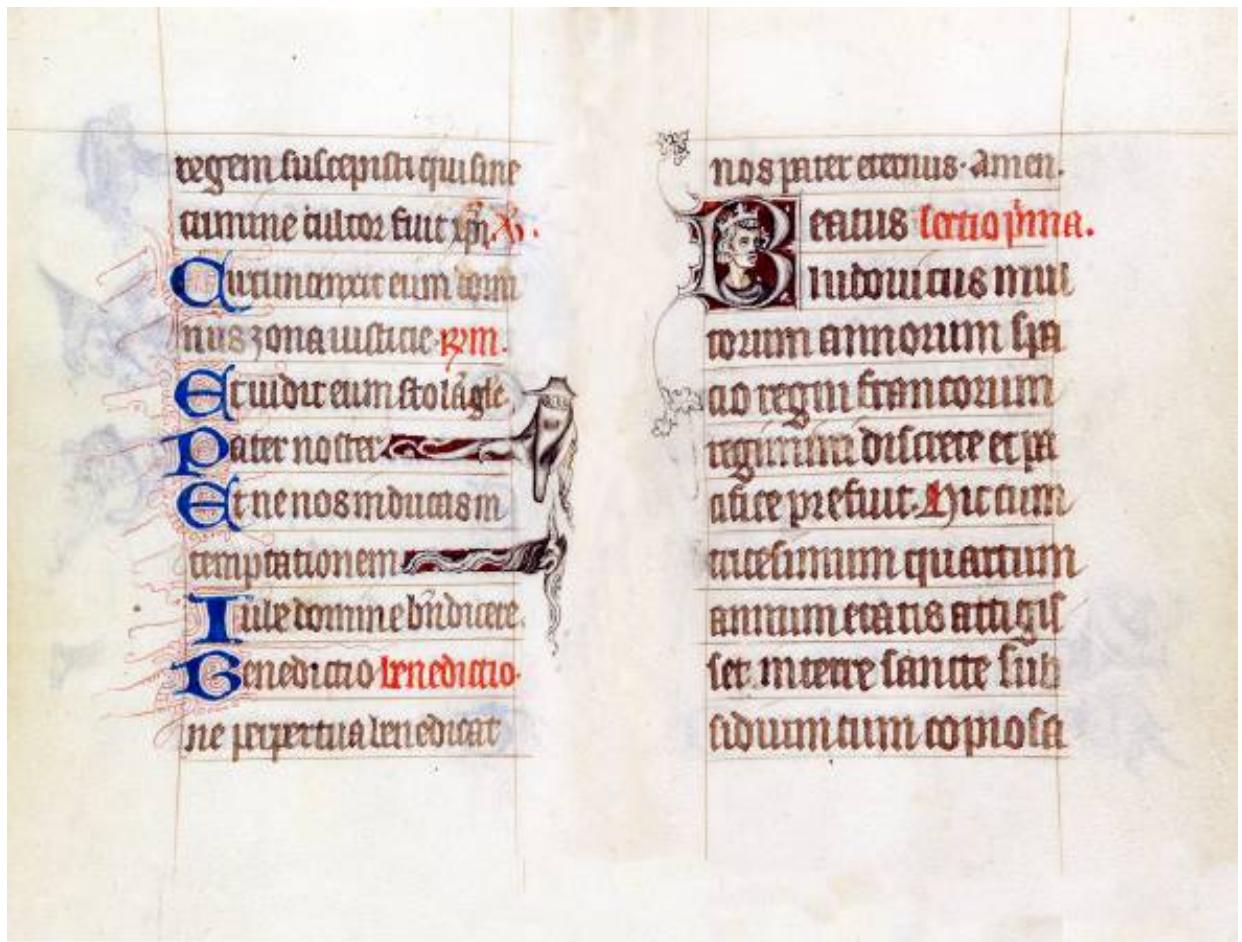 regem suscepisti qui sine
crimine cultor fuit xp̄i. X̄.
Circumcinxit eum domi
nus zona iusticie. R̄m.
Et induit eum stola gl̄e.
Pater noster
Et ne nos inducas in
temptationem
Iube domine b̄ndicere.
Benedictio benedictio
ne perpetua benedicat
nos pater eternus. amen.
Beatus lectio p̄ima.
ludovicus mul
torum annorum spa
cio regni francorum
regimini discrete et pa
cifice prefuit. Hic cum
vicesimum quartum
annum etatis attigis
set in terre sancte sub
sidium cum copiosa